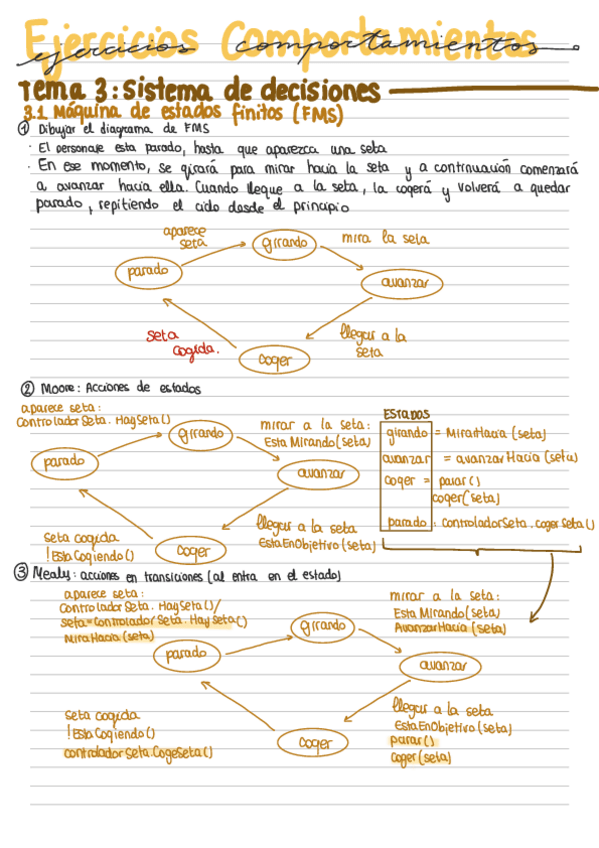 Ejercicios Comportamientos
ejercicios comportamientos.
Tema 3: Sistema de decisiones
3.1 Máquina de estados finitos (FMS)
① Dibujar el diagrama de FMS
· El personaje esta parado, hasta que aparezca una seta
· En ese momento, se girará para mirar hacia la seta y a continuación comenzará
a avanzar hacia ella. Cuando llegue a la seta, la cogerá y volverá a quedar
parado, repitiendo el ciclo desde el principio
aparece
seta
girando
mira la seta
parado
avanzar
seta
cogida.
coger
llegar a la
seta
② Moore: Acciones de estados
aparece seta:
ControladorSeta.HaySeta()
girando
mirar a la seta:
EstaMirando(seta)
parado
avanzar
seta cogida
!EstaCogiendo()
coger
llegar a la seta
EstaEnObjetivo(seta)
ESTADOS
girando = MiraHacia(seta)
avanzar = avanzarHacia(seta)
coger = parar()
coger(seta)
parado: controladorSeta.cogerSeta()
③ Mealy: acciones en transiciones (al entra en el estado)
aparece seta:
ControladorSeta.HaySeta()/
seta=ControladorSeta.HaySeta()
MiraHacia(seta)
girando
mirar a la seta:
EstaMirando(seta)
AvanzarHacia(seta)
parado
avanzar
seta cogida
!EstaCogiendo()
controladorSeta.CogeSeta()
coger
llegar a la seta
EstaEnObjetivo(seta)
parar()
coger(seta)